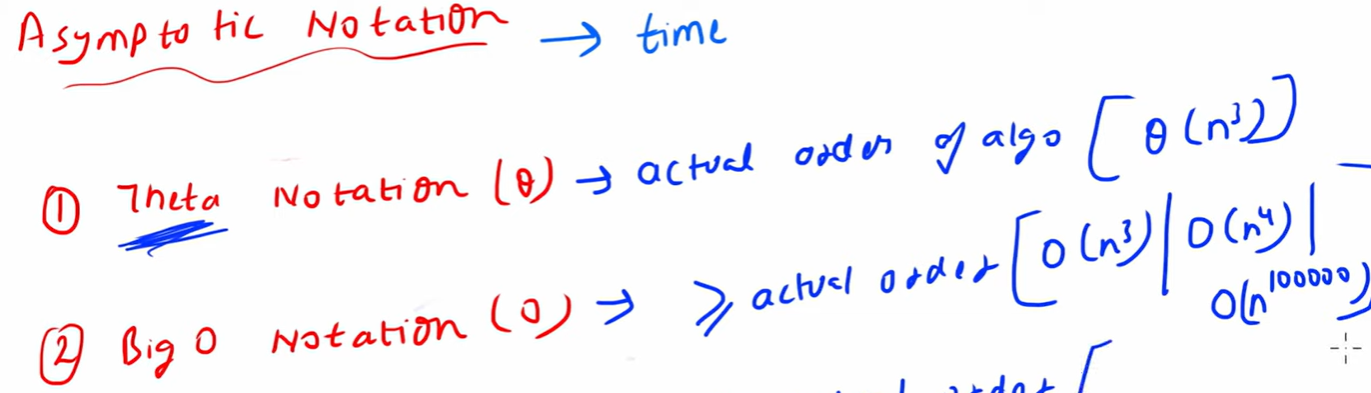 Asymptotic Notation → time
① Theta Notation (θ) → actual order of algo [θ(n³)]
② Big O Notation (O) → ≥ actual order [O(n³) | O(n⁴) |
O(n¹⁰⁰⁰⁰⁰)
order [